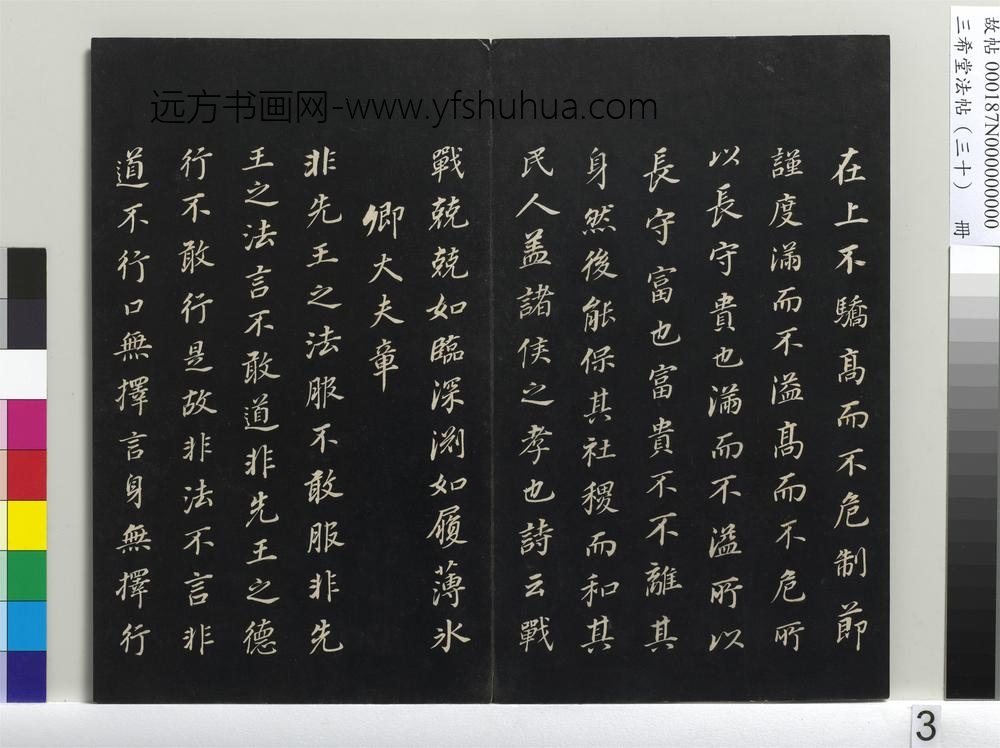 故帖 000187N000000000
三希堂法帖（三十） 冊
远方书画网-www.yfshuhua.com
在上不驕髙而不危制節
謹度滿而不溢髙而不危所
以長守貴也滿而不溢所以
長守富也富貴不不離其
身然後能保其社稷而和其
民人盖諸侯之孝也詩云戰
戰兢兢如臨深渊如履薄氷
卿大夫章
非先王之法服不敢服非先
王之法言不敢道非先王之德
行不敢行是故非法不言非
道不行口無擇言身無擇行
3